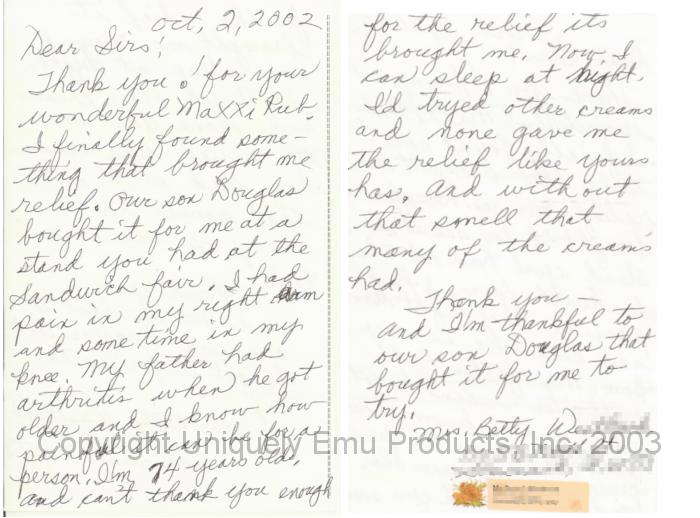 Oct, 2, 2002
Dear Sirs!
Thank you! for your
wonderful MaXXi Rub.
I finally found some-
thing that brought me
relief. Our son Douglas
bought it for me at a
stand you had at the
Sandwich fair. I had
pain in my right arm
and some time in my
knee. My father had
arthritis when he got
older and I know how
painful it can be for a
person. I'm 74 years old.
and can't thank you enough
for the relief its
brought me. Now I
can sleep at night.
I'd tryed other creams
and none gave me
the relief like yours
has. And with out
that smell that
many of the cream's
had.
Thank you –
and I'm thankful to
our son Douglas that
bought it for me to
try.
Mrs. Betty
opyright Uniquely Emu Products, Inc. 2003